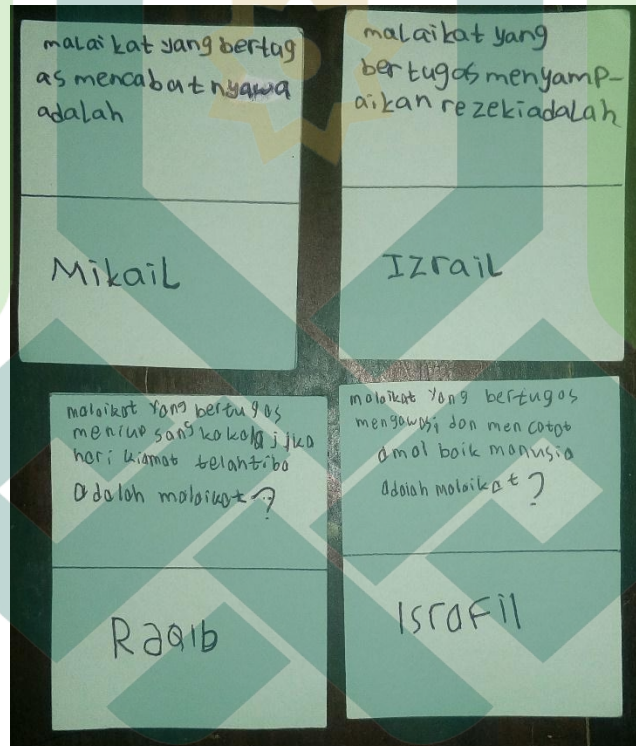 malaikat yang bertug
as mencabut nyawa
adalah
Mikail
malaikat yang
bertugas menyamp-
aikan rezeki adalah
Izrail
malaikat yang bertugas
meniup sangkakala jika
hari kiamat telah tiba
adalah malaikat?
Raqib
malaikat yang bertugas
mengawasi dan mencatat
amal baik manusia
adalah malaikat?
Israfil